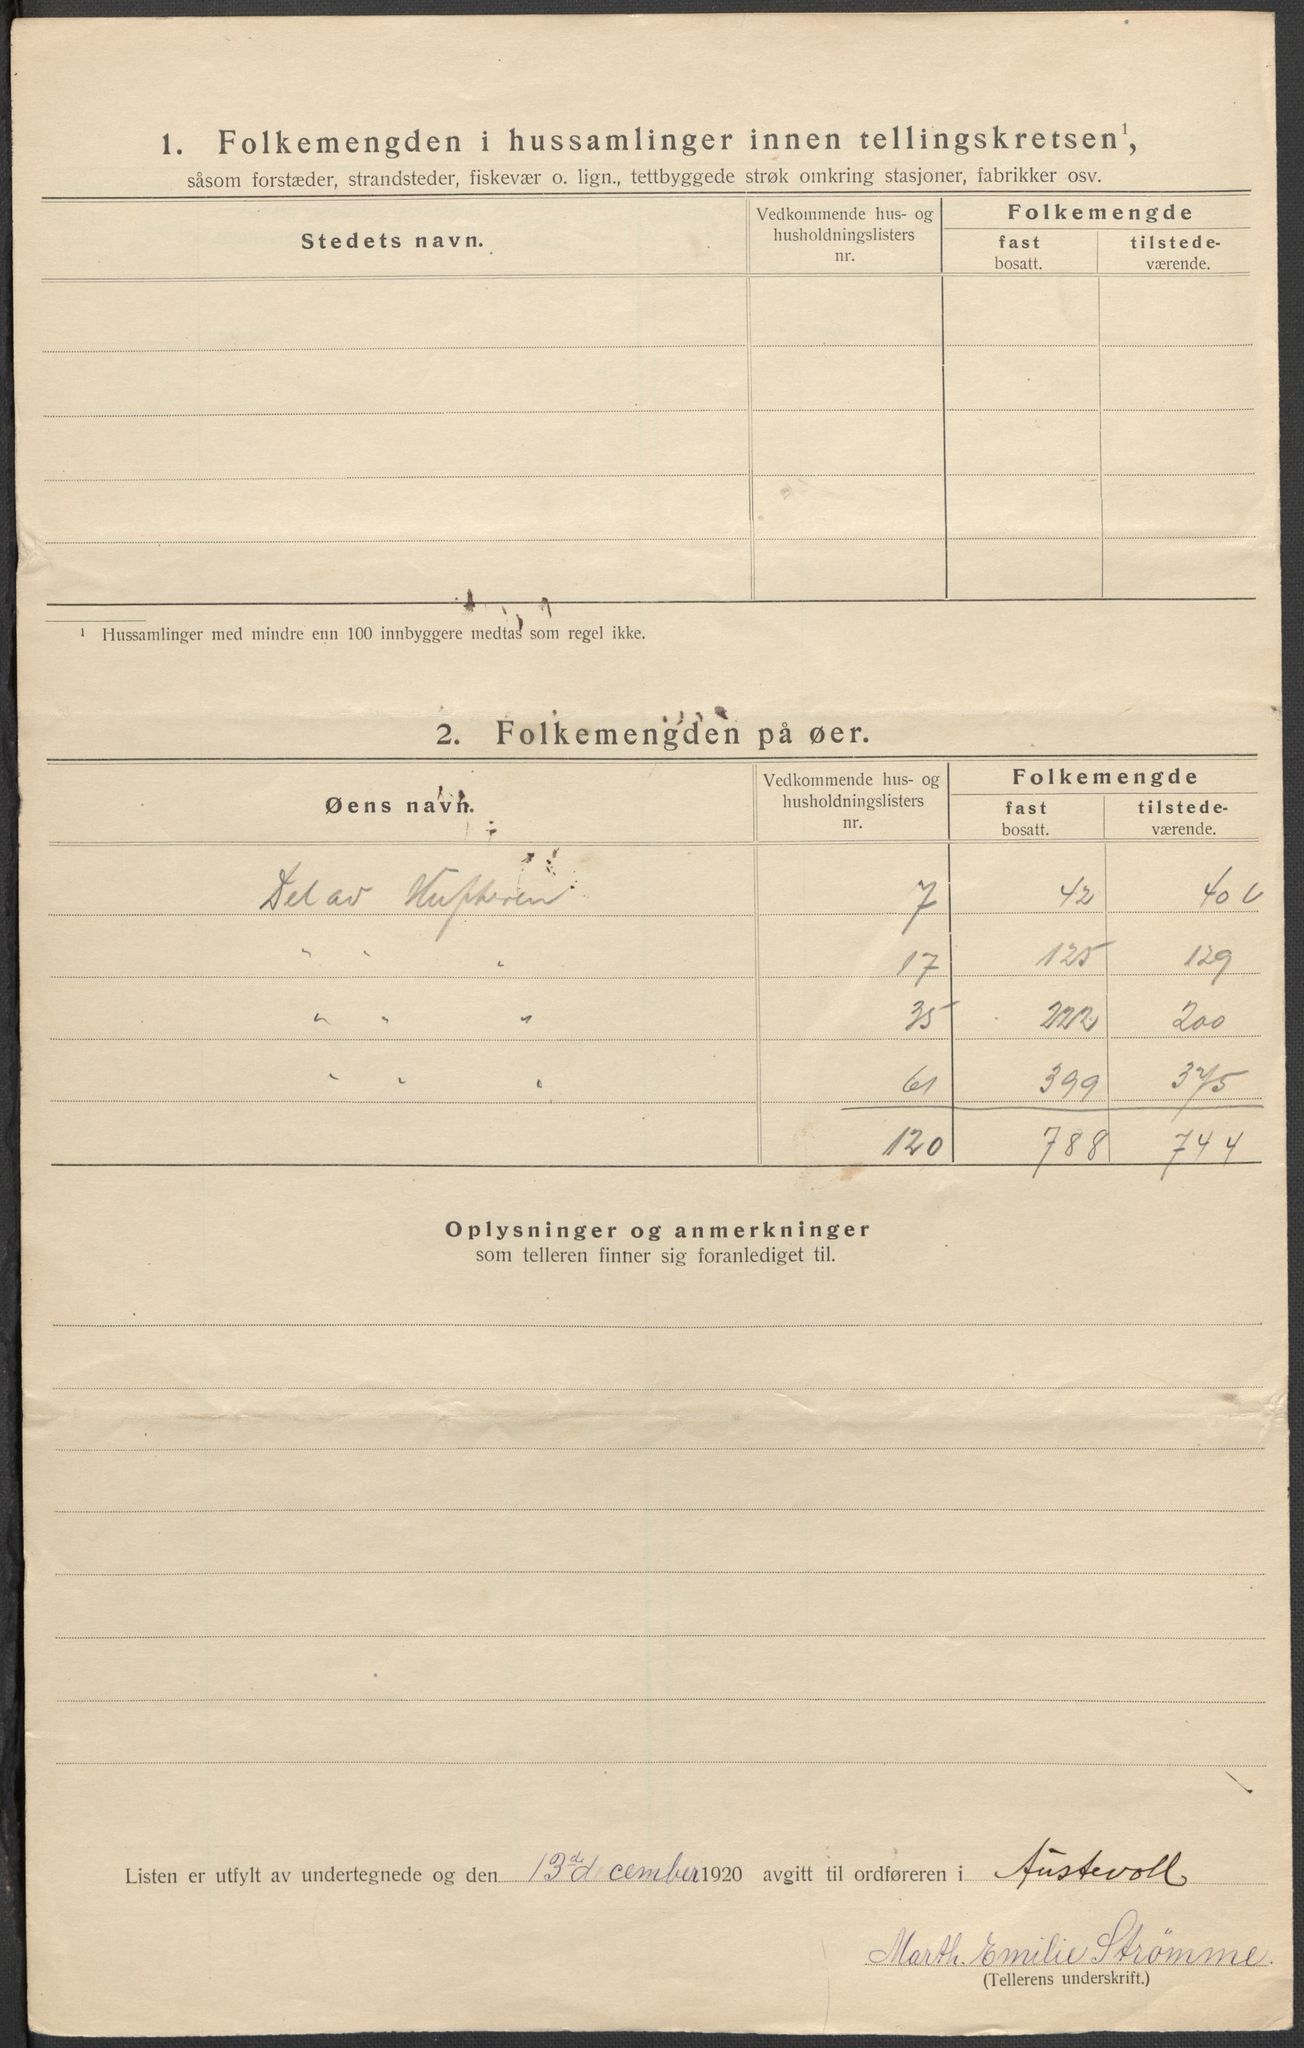 1. Folkemengden i hussamlinger innen tellingskretsen¹,
såsom forstæder, strandsteder, fiskevær o. lign., tettbyggede strøk omkring stasjoner, fabrikker osv.
Stedets navn.
Vedkommende hus- og
husholdningslisters
nr.
Folkemengde
fast
bosatt.
tilstede-
værende.
¹ Hussamlinger med mindre enn 100 innbyggere medtas som regel ikke.
2. Folkemengden på øer.
Øens navn.
Vedkommende hus- og
husholdningslisters
nr.
Folkemengde
fast
bosatt.
tilstede-
værende.
Del av Huftheren 7 42 40
" " " 17 125 129
" " " 35 222 200
" " " 61 399 375
120 788 744
Oplysninger og anmerkninger
som telleren finner sig foranlediget til.
Listen er utfylt av undertegnede og den 13de december 1920 avgitt til ordføreren i Austevoll
Marth. Emilie Strömme.
(Tellerens underskrift.)